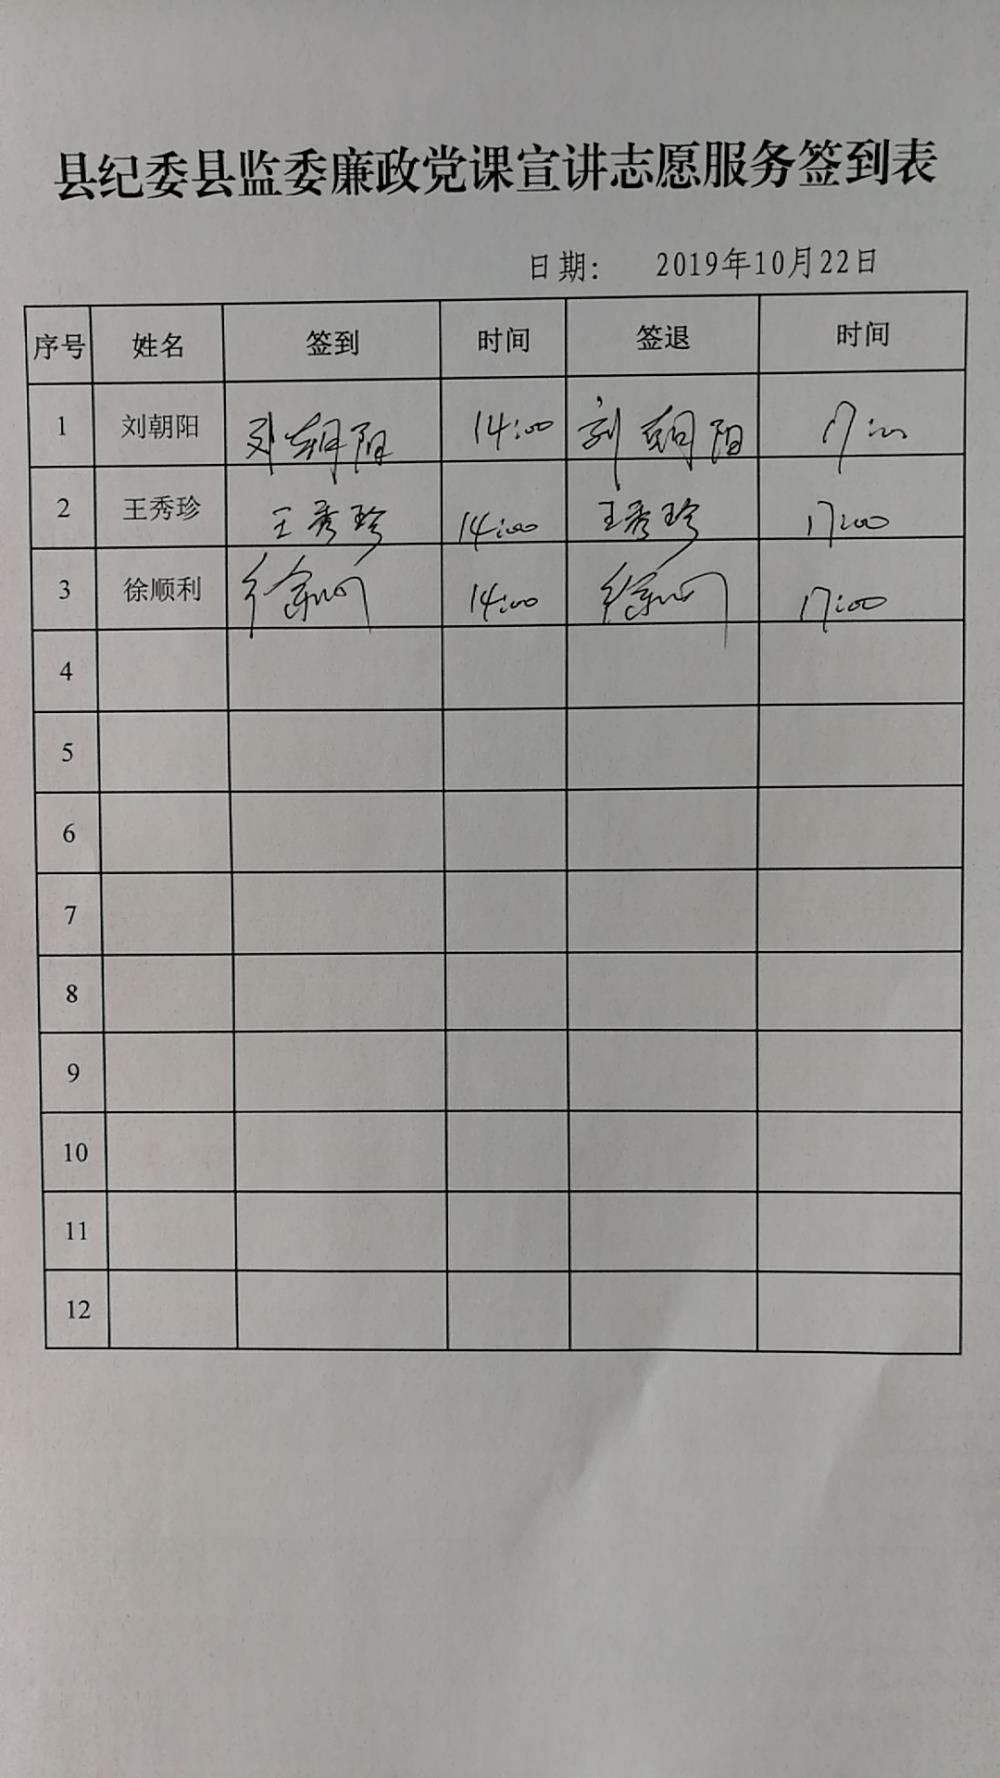 县纪委县监委廉政党课宣讲志愿服务签到表
日期： 2019年10月22日
序号 姓名 签到 时间 签退 时间
1 刘朝阳 刘朝阳 14:00 刘朝阳 17:00
2 王秀珍 王秀珍 14:00 王秀珍 17:00
3 徐顺利 徐顺利 14:00 徐顺利 17:00
4
5
6
7
8
9
10
11
12